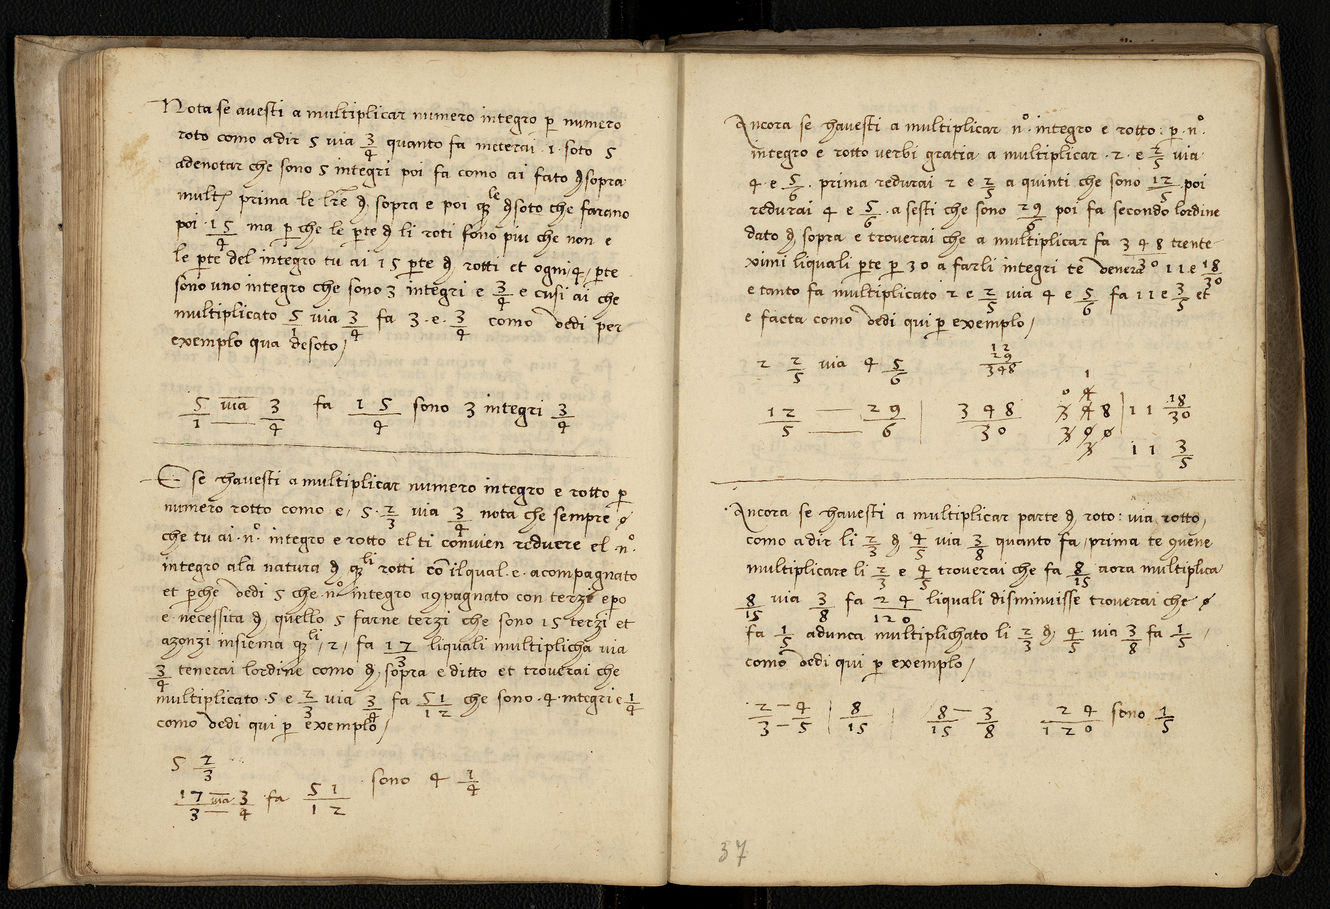 Nota se avesti a multiplicar numero integro p numero
roto como adir 5 via 3/4 quanto fa meterai · 1 · soto 5
adenotar che sono 5 integri poi fa como ai fato d sopra
mult prima le lre d sopra e poi q le d soto che farano
poi 15/4 ma p che le pte d li roti sono piu che non e
le pte del integro tu ai 15 pte d rotti et ogni 4 pte
sono uno integro che sono 3 integri e 3/4 e cusi ai che
multiplicato 5/1 via 3/4 fa 3 · e · 3/4 como vedi per
exemplo qua desoto /
5/1 via 3/4 fa 15/4 sono 3 integri 3/4
E se havesti a multiplicar numero integro e rotto p
numero rotto como e 5 · 2/3 via 3/4 nota che sempre
che tu ai · nº · integro e rotto el ti convien redurre el · nº ·
integro ala natura d q li rotti cō il qual · e · acompagnato
et pche vedi 5 che · nº integro a9pagnato con terzi epo
e necessita d quello 5 farne terzi che sono 15 terzi et
azonzi insiema q li 2 / fa 17/3 liquali multiplicha via
3/4 tenerai lordine como d sopra e ditto et troverai che
multiplicato · 5 e 2/3 via 3/4 fa 51/12 che sono · 4 · integri e 1/4
como vedi qui p exemplo /
5 2/3
17/3 via 3/4 fa 51/12 sono 4 1/4
Ancora se havesti a multiplicar nº · integro e rotto · p · nº ·
integro e rotto verbi gratia a multiplicar · 2 · e 2/5 via
4 · e 5/6 · prima redurai 2 e 2/5 a quinti che sono 12/5 poi
redurai 4 e 5/6 · a sesti che sono 29/6 poi fa secondo lordine
dato d sopra e troverai che a multiplicar fa 348/30 trente
ximi liquali pte p 30 a farli integri te venera 11 e 18/30
e tanto fa multiplicato 2 e 2/5 via 4 e 5/6 fa 11 e 3/5 et
e facta como vedi qui p exemplo /
2 2/5 via 4 5/6
12
29
348
12/5 29/6 348/30
1
0 4
3 4 8 | 11 18/30
3 0 0
3 11 3/5
Ancora se havesti a multiplicar parte d roto : via rotto,
como adir li 2/3 d 4/5 via 3/8 quanto fa / prima te 9vene
multiplicare li 2/3 e 4/5 troverai che fa 8/15 aora multiplica
8/15 via 3/8 fa 24/120 liquali disminuisse troverai che
fa 1/5 adunca multiplichato li 2/3 d 4/5 via 3/8 fa 1/5 /
como vedi qui p exemplo /
2/3 – 4/5 | 8/15 | 8/15 – 3/8 24/120 sono 1/5
37